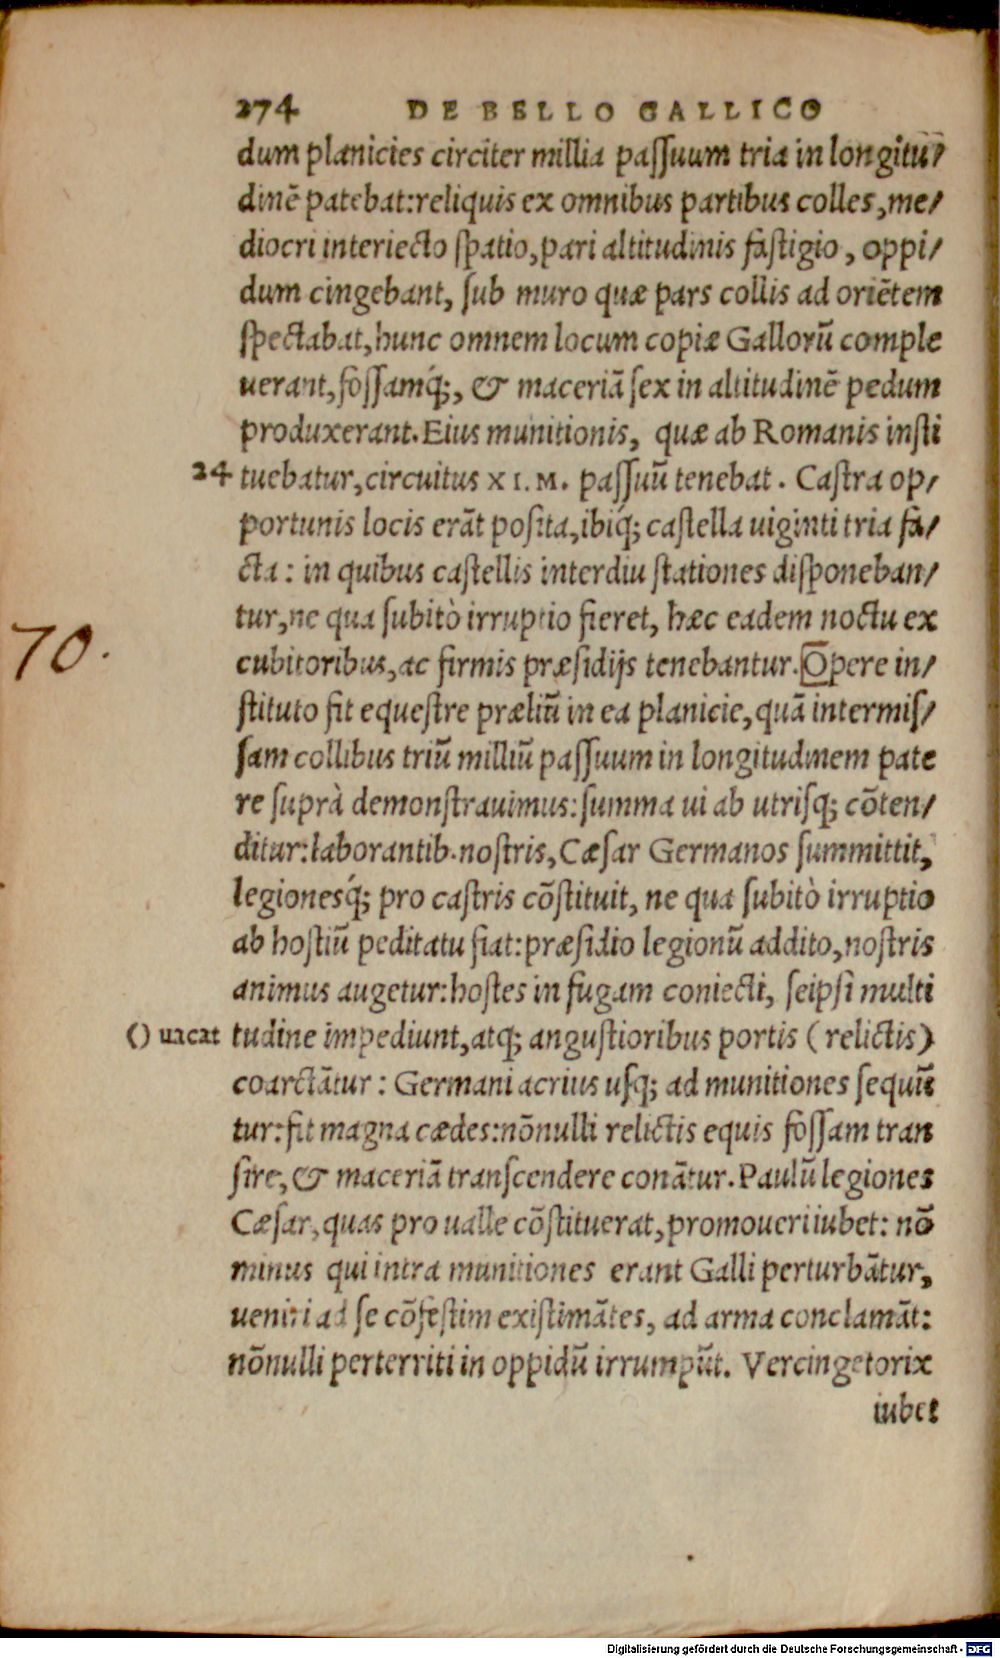 274 DE BELLO GALLICO
dum planicies circiter millia passuum tria in longitu/
dinē patebat: reliquis ex omnibus partibus colles, me/
diocri interiecto spatio, pari altitudinis fastigio, oppi/
dum cingebant, sub muro quæ pars collis ad oriētem
spectabat, hunc omnem locum copiæ Gallorū comple
uerant, fossamq́;, & maceriā sex in altitudinē pedum
produxerant. Eius munitionis, quæ ab Romanis insti
24 tuebatur, circuitus XI. M. passuū tenebat. Castra op/
portunis locis erāt posita, ibiq́; castella uiginti tria fa/
cta: in quibus castellis interdiu stationes disponeban/
tur, ne qua subitò irruptio fieret, hæc eadem noctu ex
70.
cubitoribus, ac firmis præsidijs tenebantur. Opere in/
stituto fit equestre præliū in ea planicie, quā intermis/
sam collibus triū milliū passuum in longitudinem pate
re suprà demonstrauimus: summa ui ab utrisq; cōten/
ditur: laborantib. nostris, Cæsar Germanos summittit,
legionesq́; pro castris cōstituit, ne qua subitò irruptio
ab hostiū peditatu fiat: præsidio legionū addito, nostris
animus augetur: hostes in fugam coniecti, seipsi multi
() uacat tudine impediunt, atq; angustioribus portis (relictis)
coarctātur: Germani acrius usq; ad munitiones sequū
tur: fit magna cædes: nōnulli relictis equis fossam tran
sire, & maceriā transcendere conātur. Paulū legiones
Cæsar, quas pro ualle cōstituerat, promoueri iubet: nō
minus qui intra munitiones erant Galli perturbātur,
ueniri ad se cōfestim existimātes, ad arma conclamāt:
nōnulli perterriti in oppidū irrumpūt. Vercingetorix
iubet
Digitalisierung gefördert durch die Deutsche Forschungsgemeinschaft - DFG